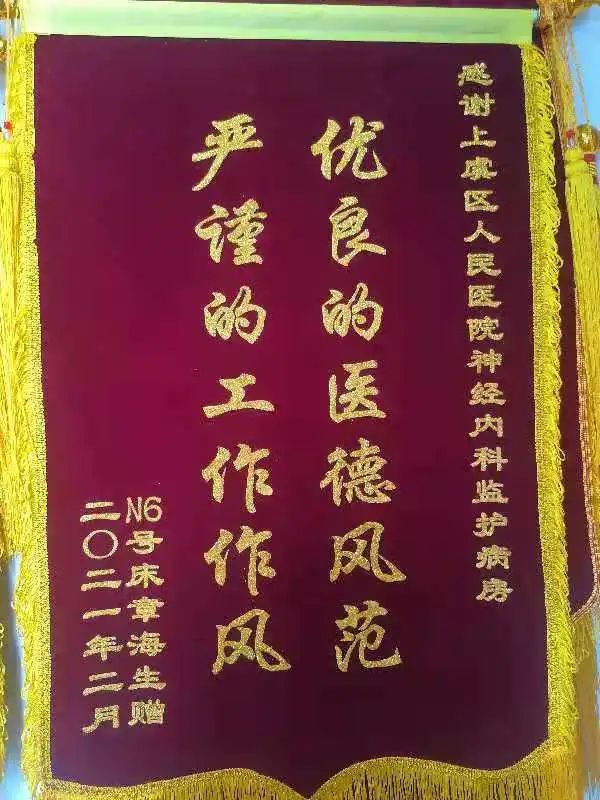 感谢上虞区人民医院神经内科监护病房
优良的医德风范
严谨的工作作风
N6号床章海生赠
二〇二一年二月